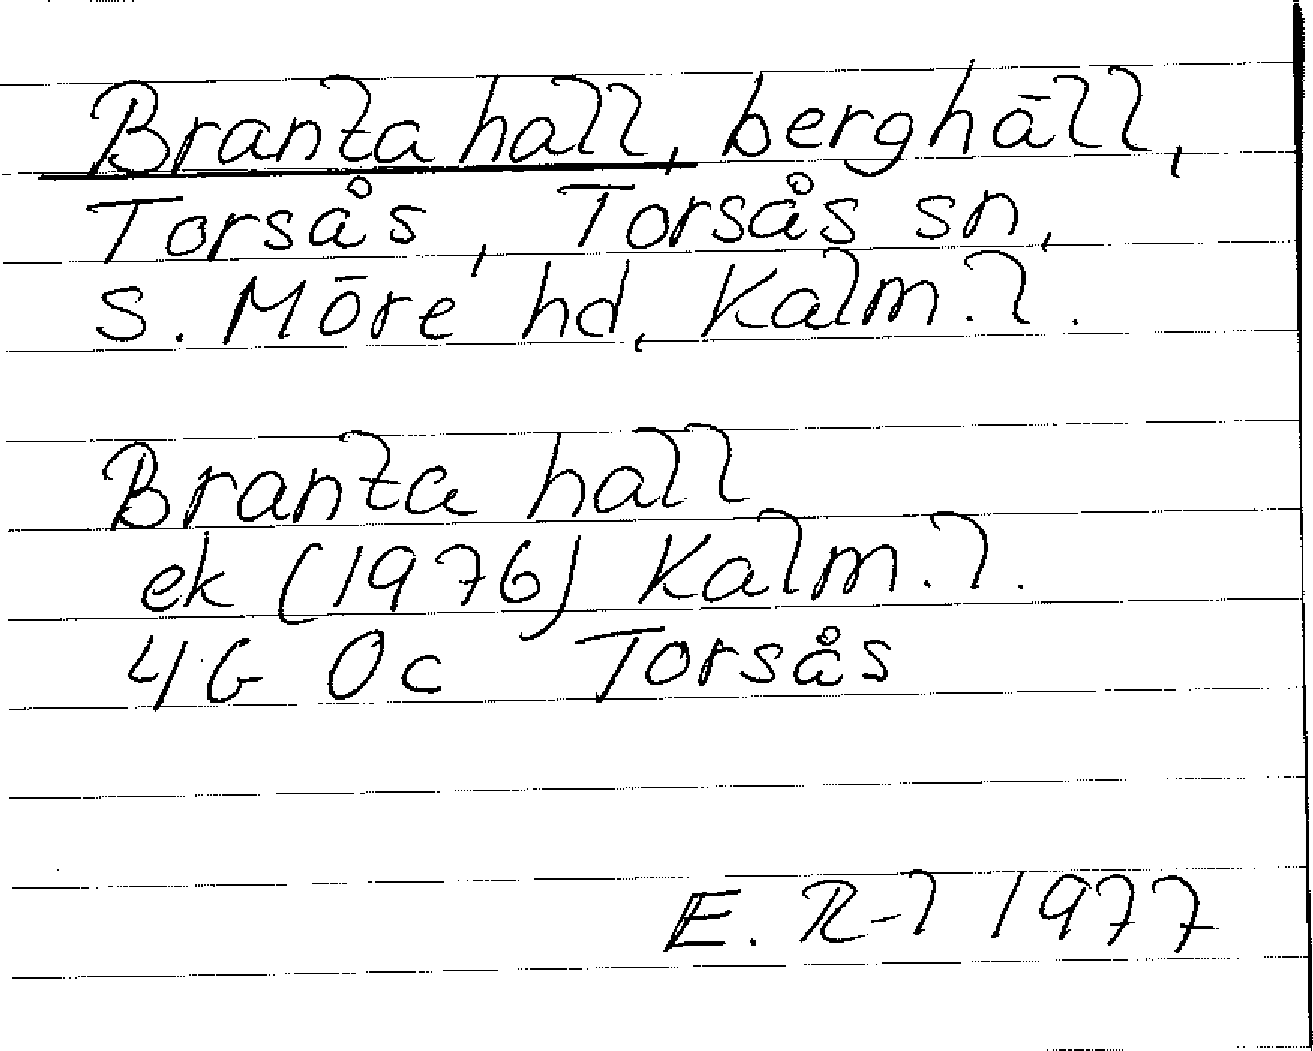 Branta hall, berghäll,
Torsås, Torsås sn,
S. Möre hd, Kalm. l.
Branta hall
ek (1976) Kalm. l.
4G 0c Torsås
E. R-l 1977